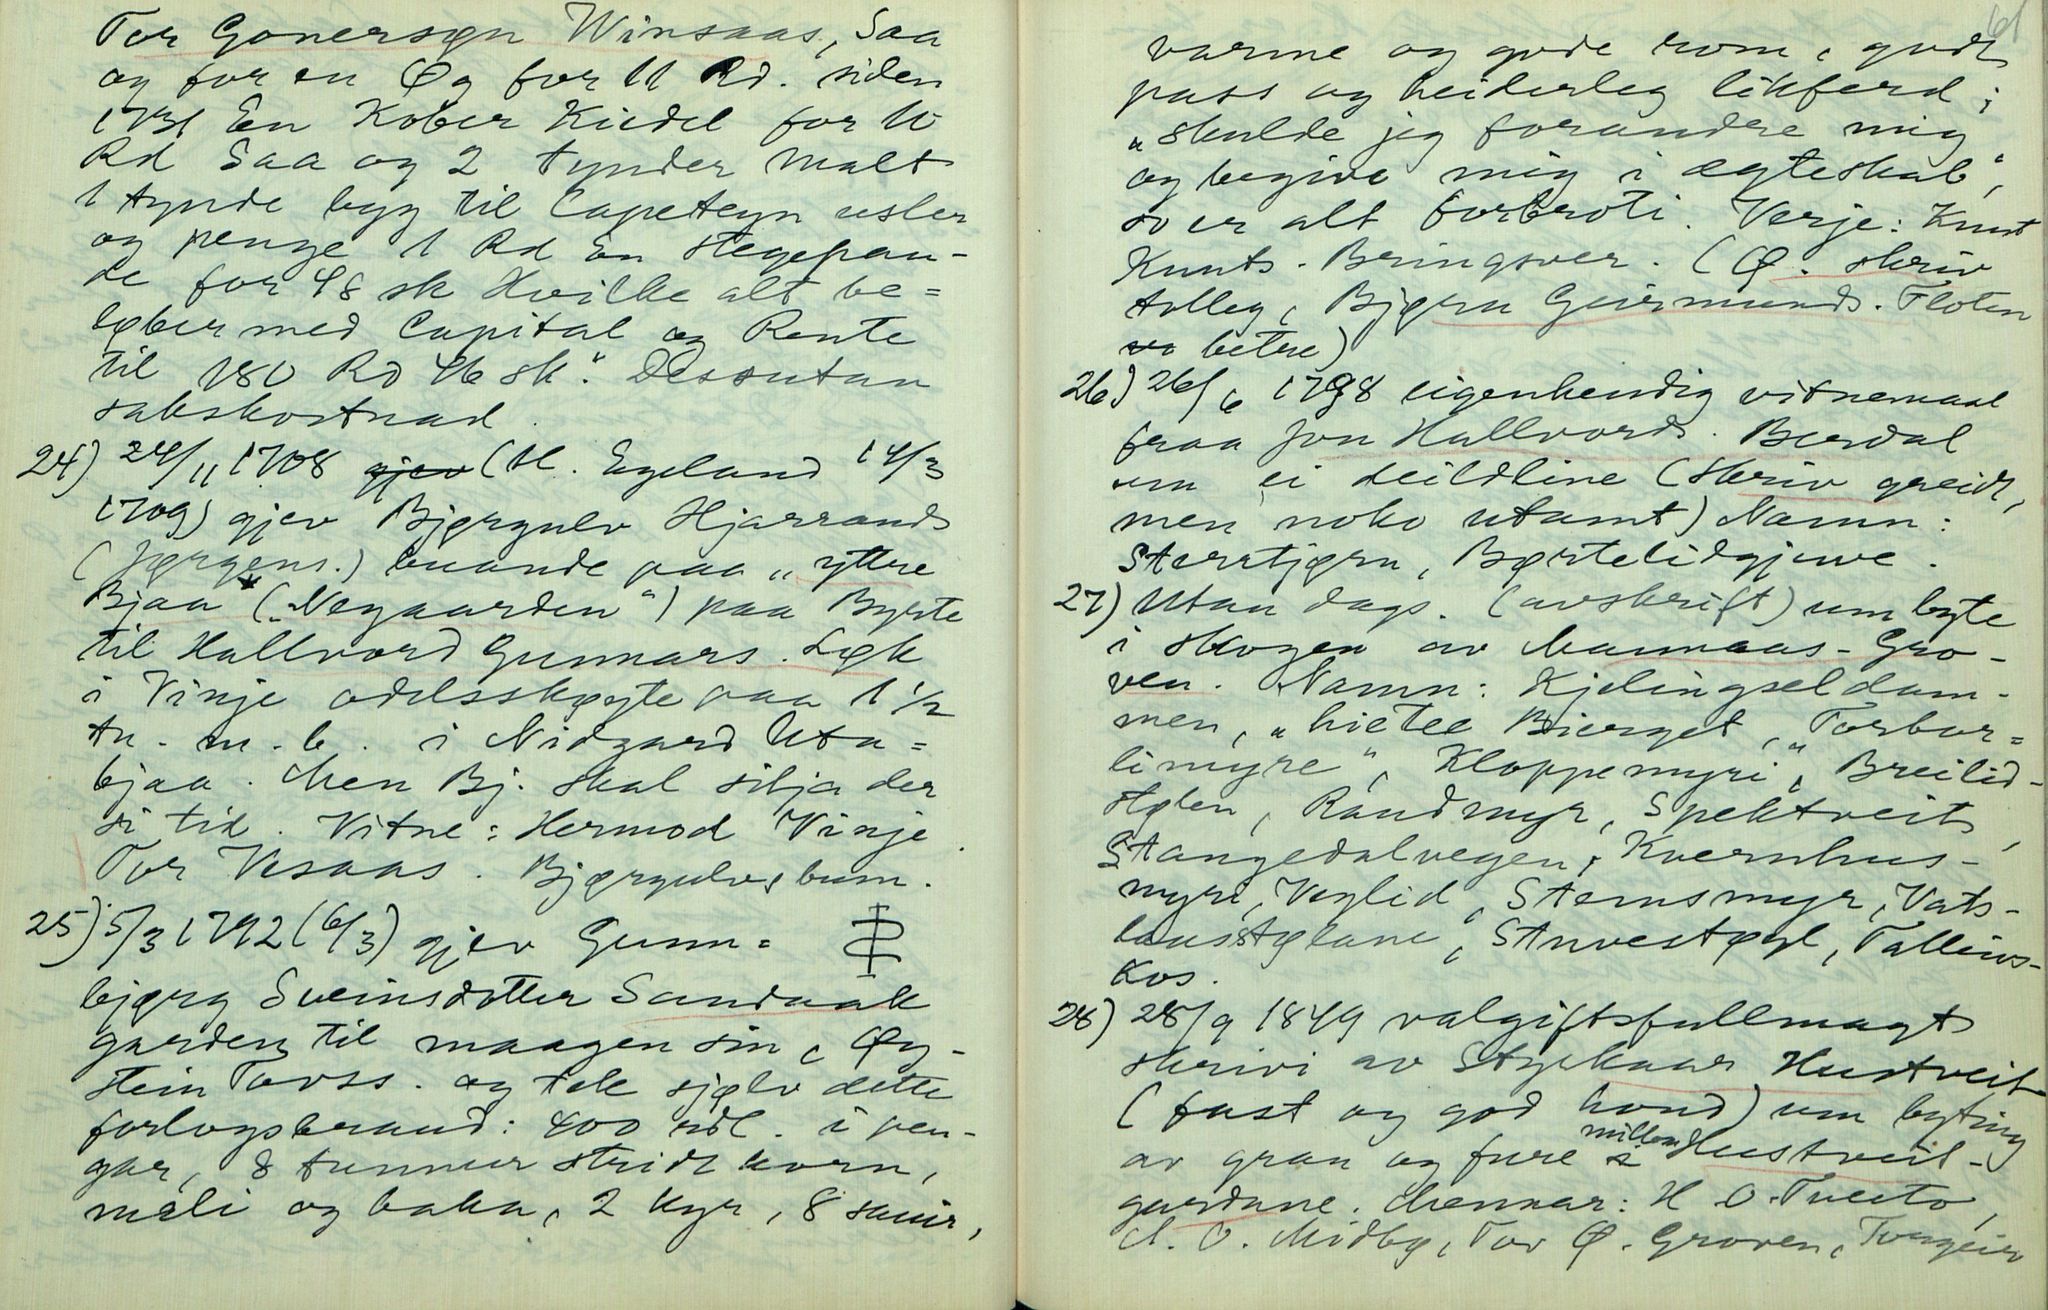 Tor Gonersøn Winsaas, Saa
og for en Øg for 11 Rd. siden
1731 En Kober Kiedel for 10
Rd Saa og 2 tynder malt
1 tynde byg til Capeteyn usler
og penge 1 Rd En stegepan-
de for 48 sk Hvilke alt be=
løber med Capital og Rente
til 180 Rd 46 sk". Dessutan
sakskostnad.
24) 24/11 1708 gjev (H. Egeland 14/3
1709) gjev Bjørgulv Hjarrands
(Jørgens.) buande paa "yttre
Bjaa" ("Negaarden") paa Byrte
til Hallvord Gunnars. Løk
i Vinje odelsskøyte paa 1 1/2
tn. m. b. i Nidgard Uta=
bjaa. Men Bj. skal silja der
si tid. Vitne: Hermod Vinje
Tor Vesaas. Bjørgulvs bum.
25) 5/3 1792 (6/3) gjev Gunn=
bjørg Sveinsdotter Sandnak
garden til maagen sin, Øy-
stein Tovss. og tek sjølv dette
forlogsbraud: 400 rdl. i pen-
gar, 8 tunnur stridt korn,
mali og baka, 2 kyr, 8 sauir,
61
varme og gode rom, godt
pass og heiderleg likferd;
"skulde jeg forandre mig
og begive mig i ægteskab",
so er alt forbroti. Verje: Knut
Knuts. Bringsver. (Ø. skriv
tolleg, Bjørn Geirmunds. Floten
so betre)
26) 26/6 1798 eigenhendig vitnemaal
fraa Jon Hallvords. Berdal
um ei deildline (skriv greidt,
men noko utamt) Namn:
Sterrtjørn, Børtelidgjuve.
27) Utan dags. (avskrift) um byte
i skogen av Maumaas-Gro-
ven. Namn: Kjelingseldam-
men, "hietee Bierget, "Torbor=
limyre", Kloppemyri", Breilid-
stølen, Raudmyr, Spektveit,
Stangedalvegen, Kvernhus-
myri, Veglid, Stemsmyr, Vats-
lausstølane, Stuvestøyl, Tallius-
Kos.
28) 28/9 1849 valgiftsfullmagt
skrivi av Styrkaar Hustveit
(fast og god hond) um byting
av gran og fure i millom Hustveit-
gardane. Mennar: H O. Tveito,
A. O. Midbø, Tov Ø. Groven, Torgeir